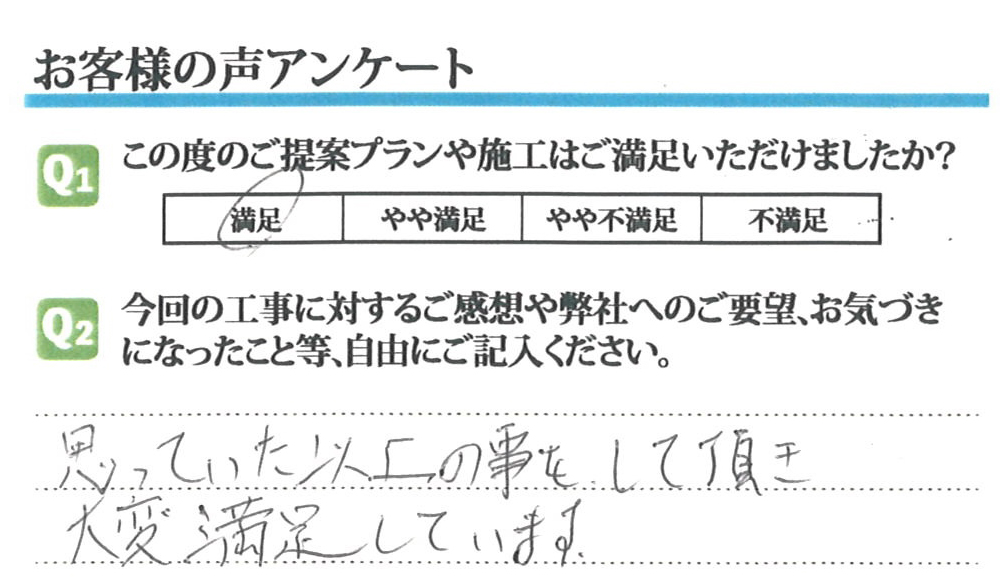 お客様の声アンケート
Q1 この度のご提案プランや施工はご満足いただけましたか?
満足 やや満足 やや不満足 不満足
Q2 今回の工事に対するご感想や弊社へのご要望、お気づき
になったこと等、自由にご記入ください。
思っていた以上の事をして頂き
大変満足しています。